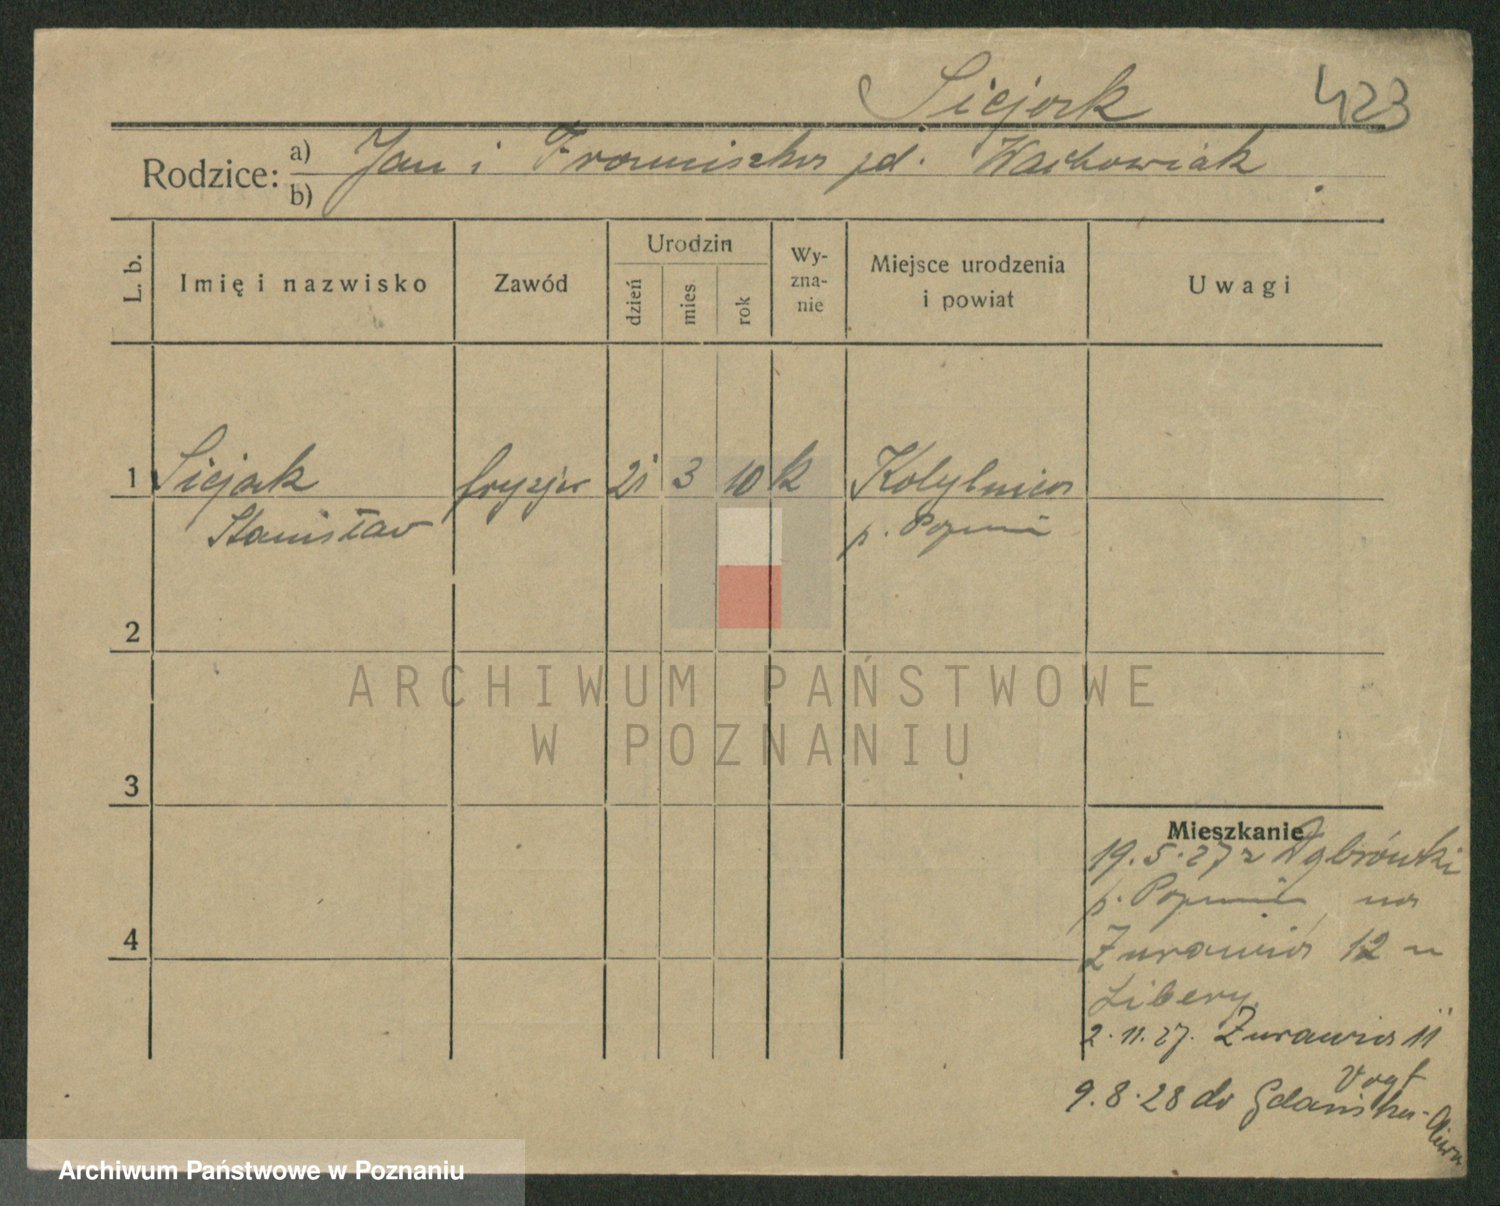 Siejak 423
Rodzice: a) Jan i Franciszka zd. Wachowiak
b)
L. b. Imię i nazwisko Zawód Urodzin dzień mies rok Wy-zna-nie Miejsce urodzenia i powiat Uwagi
1 Siejak fryzjer 21 3 10 k Kobylnica
Stanisław p. Poznań
2
ARCHIWUM PAŃSTWOWE
W POZNANIU
3
Mieszkanie
19.5.27 z
p. Poznań na
4
Żurawia 12 u
Libery
2.11.27. Żurawia 11
Vogt
9.8.28 do Gdańska-
Archiwum Państwowe w Poznaniu